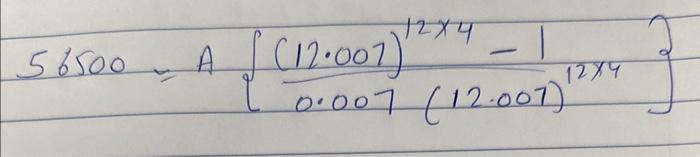 56500 = A { (12.007)^12×4 - 1 / 0.007 (12.007)^12×4 }